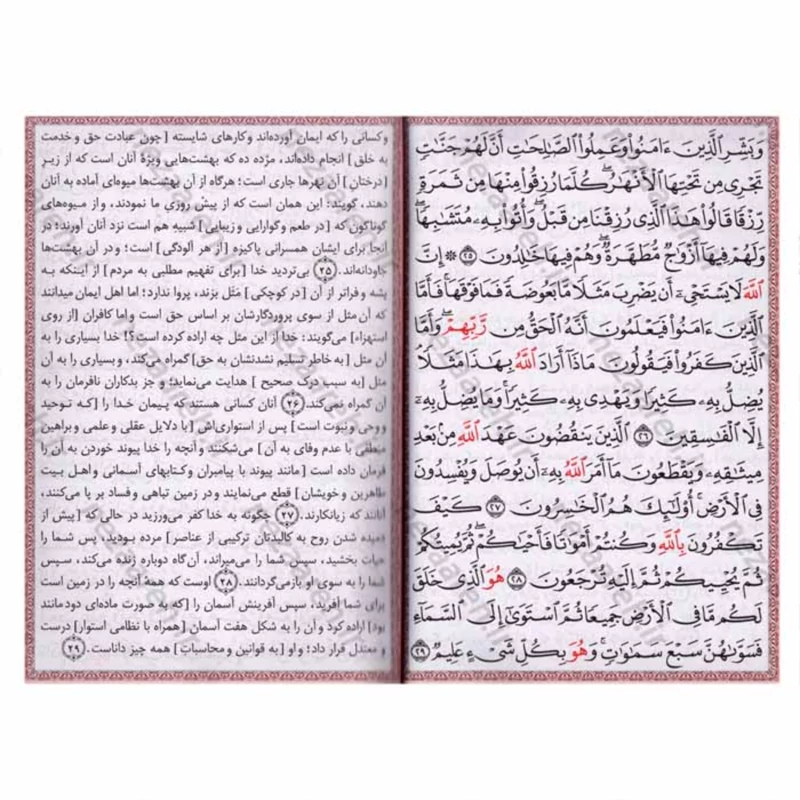 وَبَشِّرِ الَّذِينَ ءَامَنُوا وَعَمِلُوا الصَّالِحَاتِ أَنَّ لَهُمْ جَنَّاتٍ
تَجْرِي مِن تَحْتِهَا الْأَنْهَارُ كُلَّمَا رُزِقُوا مِنْهَا مِن ثَمَرَةٍ
رِزْقًا قَالُوا هَذَا الَّذِي رُزِقْنَا مِن قَبْلُ وَأُتُوا بِهِ مُتَشَابِهًا
وَلَهُمْ فِيهَا أَزْوَاجٌ مُطَهَّرَةٌ وَهُمْ فِيهَا خَالِدُونَ ٢٥ إِنَّ
اللَّهَ لَا يَسْتَحْيِي أَن يَضْرِبَ مَثَلًا مَا بَعُوضَةً فَمَا فَوْقَهَا فَأَمَّا
الَّذِينَ ءَامَنُوا فَيَعْلَمُونَ أَنَّهُ الْحَقُّ مِن رَّبِّهِمْ وَأَمَّا
الَّذِينَ كَفَرُوا فَيَقُولُونَ مَاذَا أَرَادَ اللَّهُ بِهَذَا مَثَلًا
يُضِلُّ بِهِ كَثِيرًا وَيَهْدِي بِهِ كَثِيرًا وَمَا يُضِلُّ بِهِ
إِلَّا الْفَاسِقِينَ ٢٦ الَّذِينَ يَنقُضُونَ عَهْدَ اللَّهِ مِن بَعْدِ
مِيثَاقِهِ وَيَقْطَعُونَ مَا أَمَرَ اللَّهُ بِهِ أَن يُوصَلَ وَيُفْسِدُونَ
فِي الْأَرْضِ أُولَئِكَ هُمُ الْخَاسِرُونَ ٢٧ كَيْفَ
تَكْفُرُونَ بِاللَّهِ وَكُنتُمْ أَمْوَاتًا فَأَحْيَاكُمْ ثُمَّ يُمِيتُكُمْ
ثُمَّ يُحْيِيكُمْ ثُمَّ إِلَيْهِ تُرْجَعُونَ ٢٨ هُوَ الَّذِي خَلَقَ
لَكُم مَّا فِي الْأَرْضِ جَمِيعًا ثُمَّ اسْتَوَى إِلَى السَّمَاءِ
فَسَوَّاهُنَّ سَبْعَ سَمَاوَاتٍ وَهُوَ بِكُلِّ شَيْءٍ عَلِيمٌ ٢٩
وکسانی را که ایمان آورده‌اند وکارهای شایسته [چون عبادت حق و خدمت
به خلق] انجام داده‌اند، مژده ده که بهشت‌هایی ویژهٔ آنان است که از زیرِ
[درختانِ] آن نهرها جاری است؛ هرگاه از آن بهشت‌ها میوه‌ای آماده به آنان
دهند، گویند: این همان است که از پیش روزیِ ما نمودند، و از میوه‌های
گوناگون که [در طعم و گوارایی و زیبایی] شبیهِ هم است نزد آنان آورند؛ در
آنجا برای ایشان همسرانی پاکیزه [از هر آلودگی] است؛ و در آن بهشت‌ها
جاودانه‌اند. (۲۵) بی‌تردید خدا [برای تفهیم مطلبی به مردم] از اینکه به
پشه و فراتر از آن [در کوچکی] مَثَل بزند، پروا ندارد؛ اما اهل ایمان میدانند
که آن مثل از سوی پروردگارشان بر اساس حق است و اما کافران [از روی
استهزاء] می‌گویند: خدا از این مثل چه اراده کرده است؟! خدا بسیاری را به
آن مثل [به خاطر تسلیم نشدنشان به حق] گمراه می‌کند، و بسیاری را به آن
مثل [به سبب درک صحیح] هدایت می‌نماید؛ و جز بدکاران نافرمان را به
آن گمراه نمی‌کند. (۲۶) آنان کسانی هستند که پیمان خدا را [که توحید
و وحی و نبوت است] پس از استواری‌اش [با دلایل عقلی و علمی و براهین
منطقی با عدم وفای به آن] می‌شکنند و آنچه را خدا پیوند خوردن به آن را
فرمان داده است [مانند پیوند با پیامبران و کتابهای آسمانی و اهل بیت
طاهرین و خویشان] قطع می‌نمایند و در زمین تباهی و فساد بر پا می‌کنند،
آنانند که زیانکارند. (۲۷) چگونه به خدا کفر می‌ورزید در حالی که [پیش از
دمیده شدن روح به کالبدتان ترکیبی از عناصر] مرده بودید، پس شما را
حیات بخشید، سپس شما را می‌میراند، آن‌گاه دوباره زنده می‌کند، سپس
شما را به سوی او بازمی‌گردانند. (۲۸) اوست که همهٔ آنچه را در زمین است
برای شما آفرید، سپس آفرینش آسمان را [که به صورت ماده‌ای دود مانند
بود] اراده کرد و آن را به شکل هفت آسمان [همراه با نظامی استوار] درست
و معتدل قرار داد؛ و او [به قوانین و محاسبات] همه چیز داناست. (۲۹)